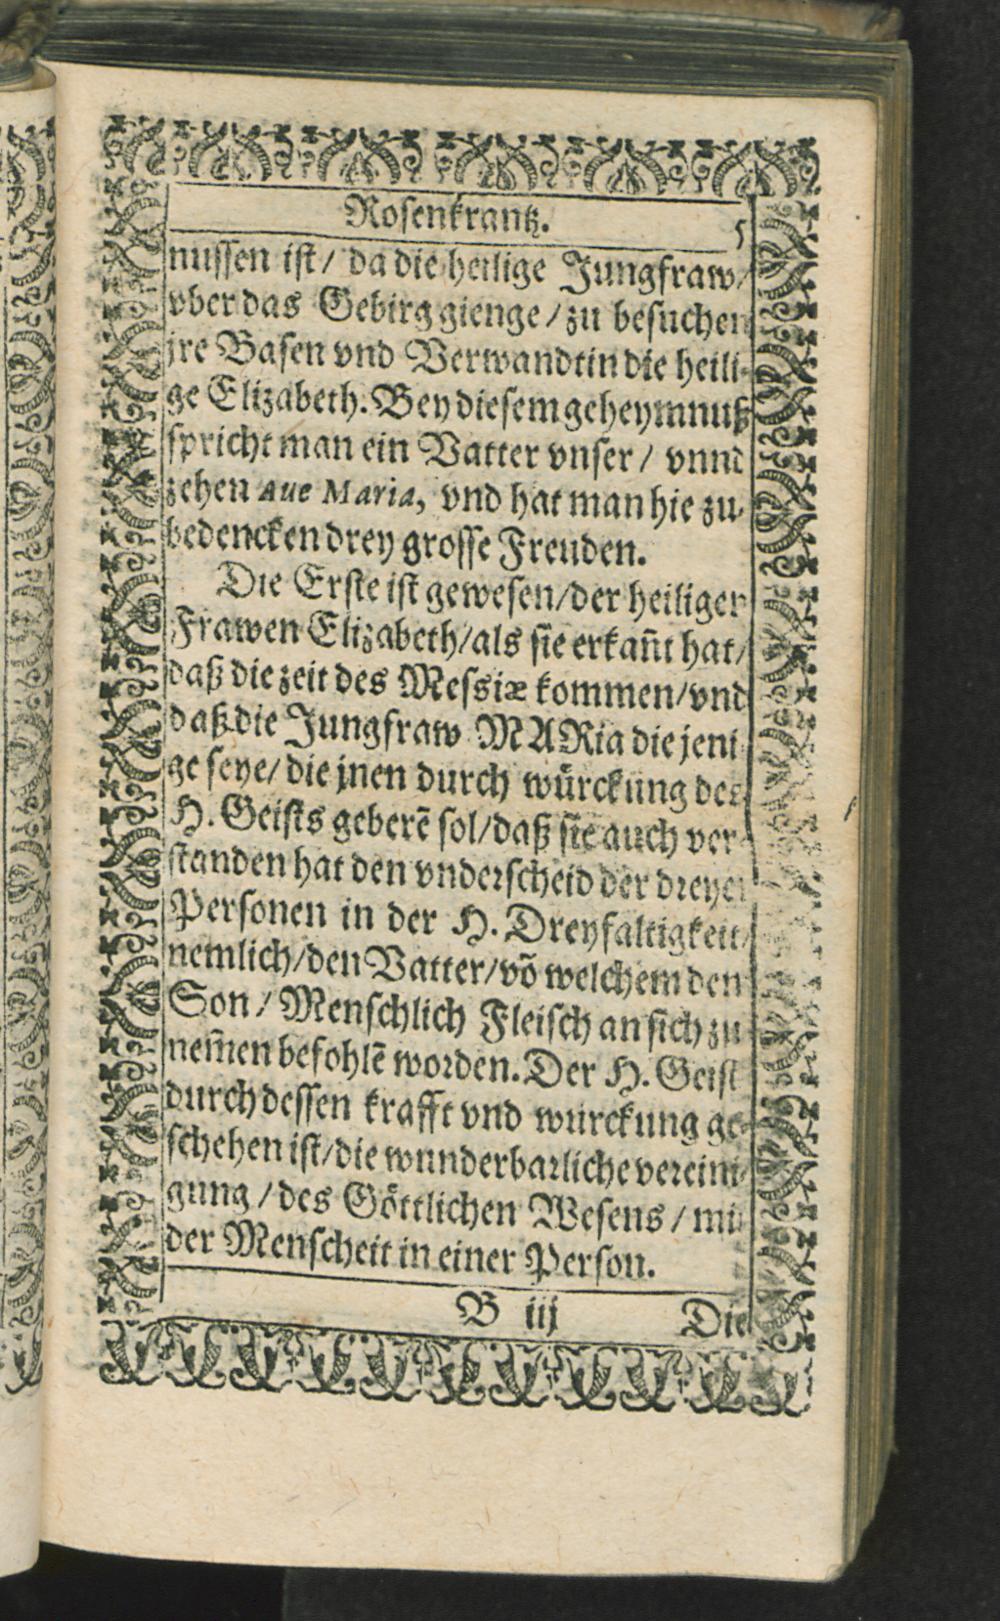 Rosenkrantz. 5
nussen ist/ da die heilige Jungfraw/
vber das Gebirg gienge/ zu besuchen
jre Basen vnd Verwandtin die heili-
ge Elizabeth. Bey diesem geheymnuß
spricht man ein Vatter vnser/ vnnd
zehen Aue Maria, vnd hat man hie zu-
bedencken drey grosse Freuden.
Die Erste ist gewesen/der heiligen
Frawen Elizabeth/als sie erkañt hat/
daß die zeit des Messiæ kommen/vnd
daß die Jungfraw MARia die jeni
ge seye/ die jnen durch würckung des
H. Geists geberẽ sol/daß sie auch ver-
standen hat den vnderscheid der dreyen
Personen in der H. Dreyfaltigkeit/
nemlich/den Vatter/võ welchem den
Son/ Menschlich Fleisch an sich zu
nem̃en befohlẽ worden. Der H. Geist
durch dessen krafft vnd würckung ge-
schehen ist/die wunderbarliche vereini-
gung/ des Göttlichen Wesens/ mit
der Menscheit in einer Person.
B iij Die